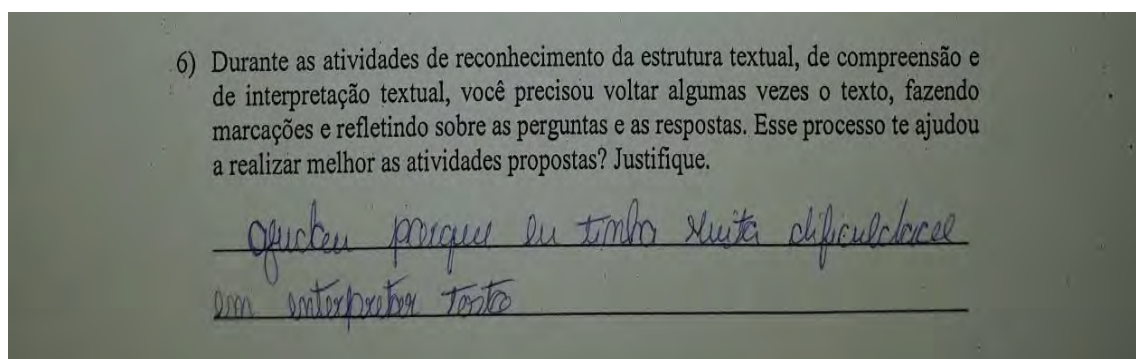 6) Durante as atividades de reconhecimento da estrutura textual, de compreensão e
de interpretação textual, você precisou voltar algumas vezes o texto, fazendo
marcações e refletindo sobre as perguntas e as respostas. Esse processo te ajudou
a realizar melhor as atividades propostas? Justifique.
ajudou porque eu tinha muita dificuldade
em interpretar texto